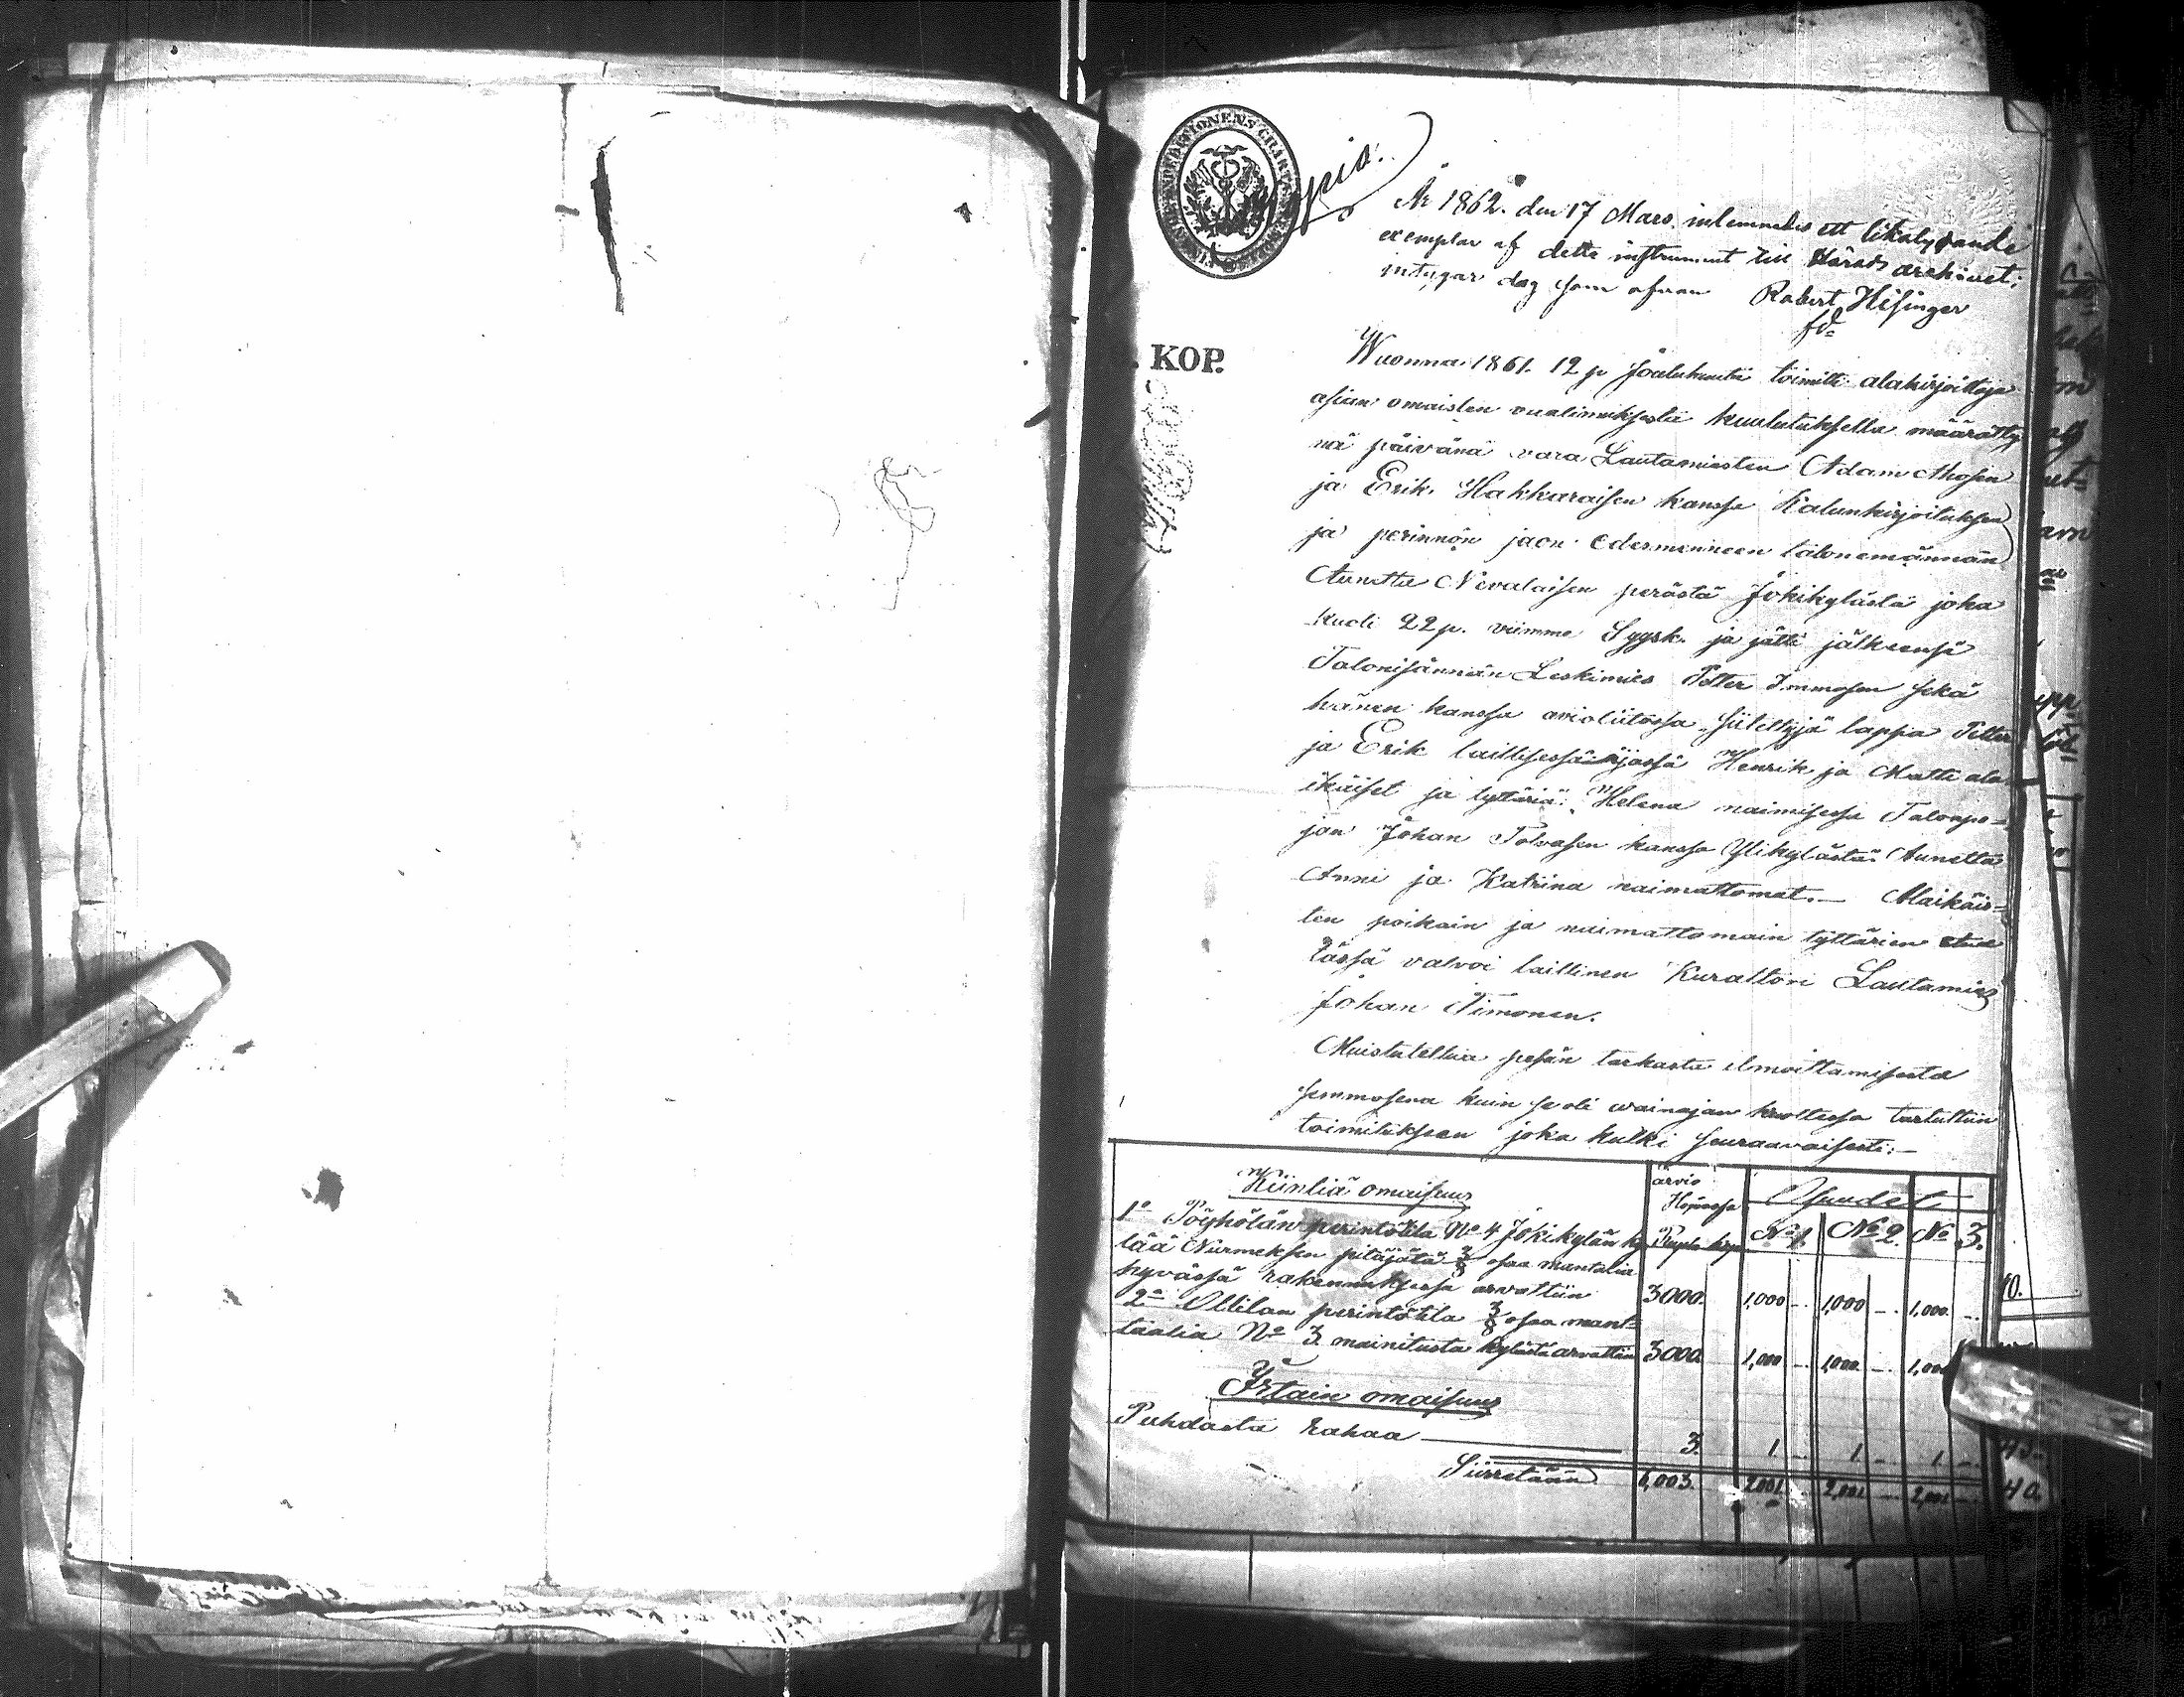 År 1862. den 17 Mars, inlemnades ett likalydande
exemplar af detta instrument till Härads archivet;
intygar dag som ofvan Robert Hisinger
. KOP.
Wuonna 1861. 12 p Joulukuuta toimitti alakirjoittaja
asian omaisten vaatimuksesta kuulutuksella määrätty
nä päivänä vara Lautamiesten Adam Ahosen
ja Erik Hakkaraisen kanssa Kalunkirjoituksen
ja perinnön jaon edesmenneen talonemännän
Annetta Nevalaisen perästä Jokikylästä joka
kuoli 22 p. viimme Syysk. ja jätti jälkeensä
Talonisännän Leskimies Petter Immosen sekä
hänen kanssa avioliitossa siitettyjä lapsia Petter
ja Erik laillisessa ijässä Henrik ja Matti ala
ikäiset ja tyttäriä: Helena naimisessa Talonpo=
jan Johan Tolvasen kanssa Ylikylästä Annetta
Anni ja Katriina naimattomat. — Alaikäis=
ten poikain ja naimattomain tyttärien etua
tässä valvoi laillinen Kuraattori Lautamies
Johan Timonen.
Muistutettua pesän tarkasta ilmoittamisesta
semmosena kuin se oli wainajan kuollessa tartuttiin
toimitukseen joka kulki seuraavaisesti: —
Kiintiä omaisuus
arvio
Hopeassa
Osuudet
Rupla kop
No 1. No 2. No 3.
1o Pöyhölän perintötila No 4 Jokikylän ky
lää Nurmeksen pitäjätä 3/8 osaa mantalia
hyvässä rakennuksessa arvattiin 3000. 1,000 — 1,000 — 1,000. —
2o Ollilan perintötila 3/8 osaa mant=
taalia No 3 mainitusta kylästä arvattiin 3000 1,000 — 1,000. — 1,000
Irtain omaisuus
Puhdasta rahaa — 3. 1. — 1. — 1. —
Siirretään 6,003. 2,001. — 2,001. — 2,001. —